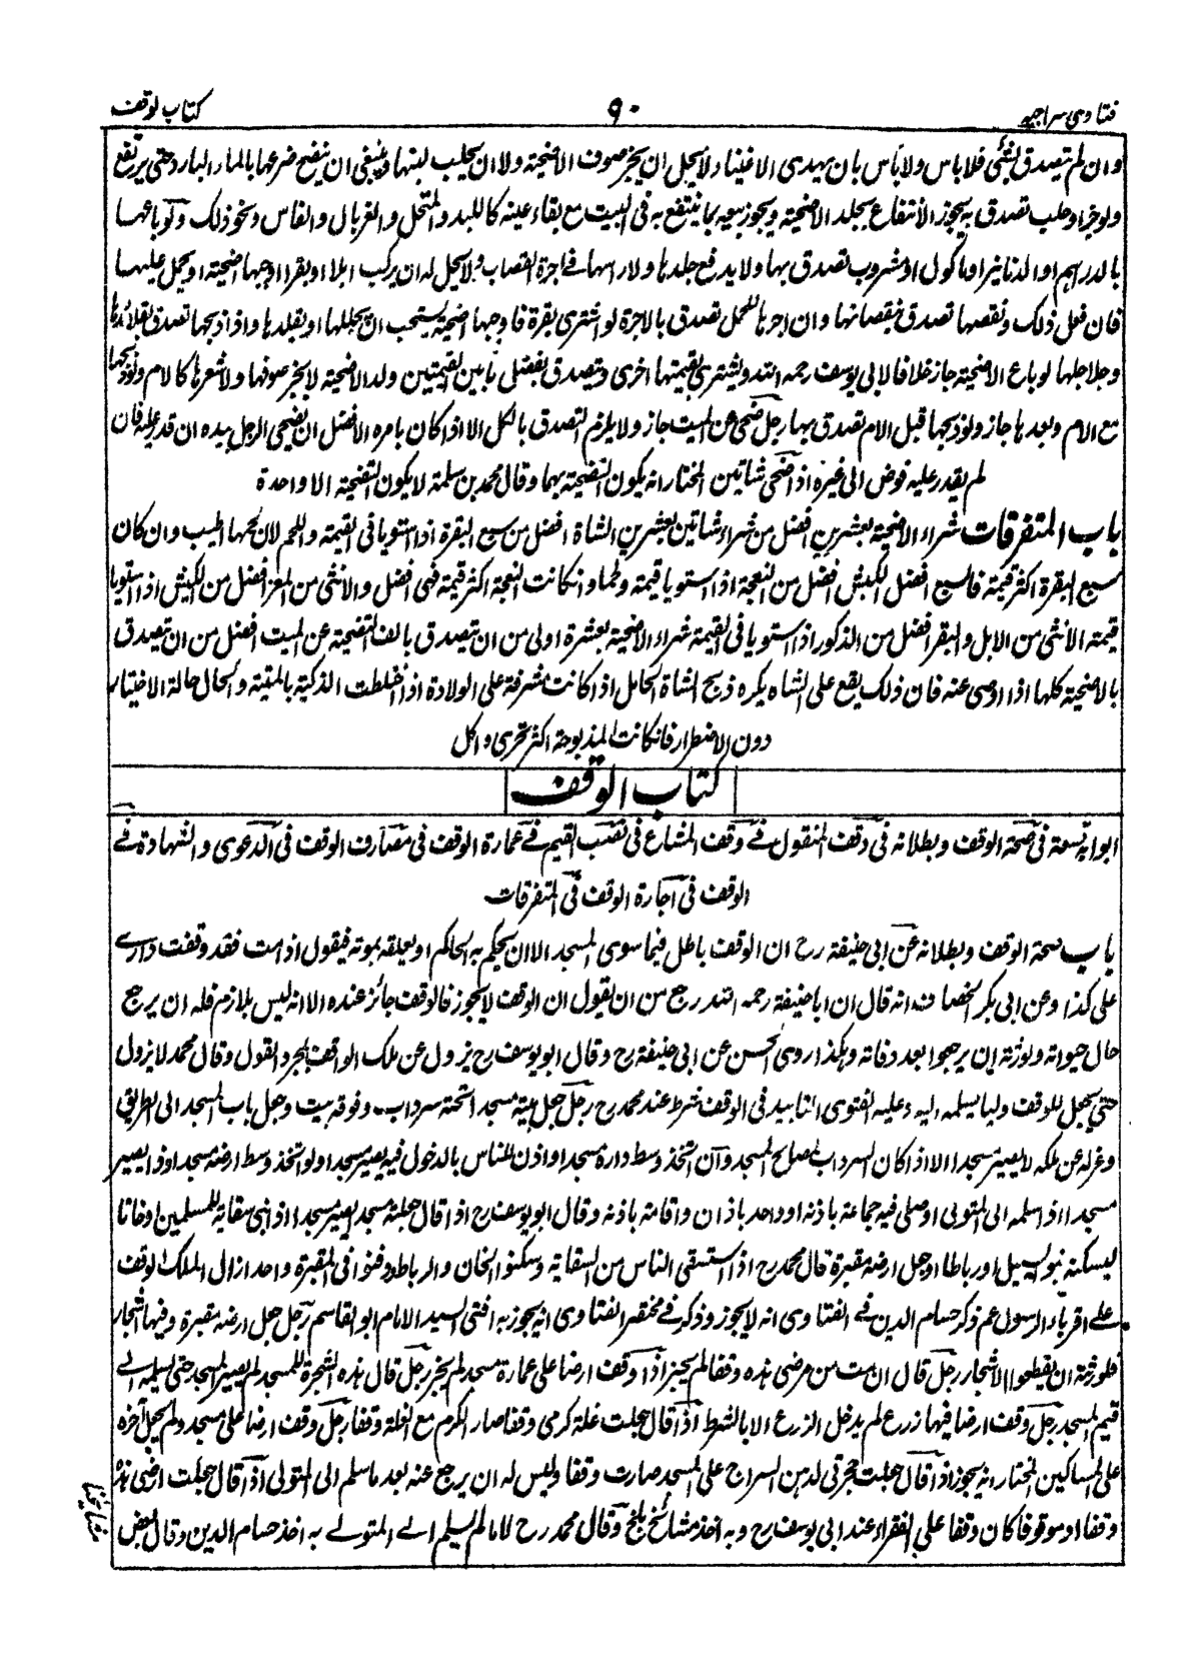 فتاوى سراجيه
٩٠
كتاب الوقف
وان لم يتصدق بشئ فلا باس ولا باس بان يهدى الاغنياء ولا يحل ان يجز صوف الاضحية ولا ان يحلب لبنها وينبغى ان ينضح ضرعها بالماء البارد حتى يرتفع
ولو جز او حلب تصدق به يجوز الانتفاع بجلد الاضحية ويجوز بيعه بما ينتفع به فى البيت مع بقاء عينه كاللبد والمنخل والغربال والفاس ونحو ذلك ولو باعها
بالدراهم او الدنانير او ماكول او مشروب تصدق بها ولا يدفع جلدها ولا راسها فى اجرة القصاب ولا يحل له ان يركب ابلا او بقرا اوجبها اضحية او يحمل عليها
فان فعل ذلك ونقصها تصدق بنقصانها وان اجرها للحمل تصدق بالاجرة لو اشترى بقرة فاوجبها اضحية يستحب ان يجللها او يقلدها واذا ذبحها تصدق بقلائدها
وجلاجلها لو باع الاضحية جاز خلافا لابى يوسف رحمه الله ويشترى بقيمتها اخرى ويتصدق بفضل ما بين القيمتين ولد الاضحية لا يجز صوفها ولا شعرها كالام ولو ذبحها
مع الام وبعدها جاز ولو ذبحها قبل الام تصدق بها رجل ضحى عن الميت جاز ولا يلزم التصدق بالكل الا اذا كان بامره الافضل ان يضحى الرجل بيده ان قدر عليه فان
لم يقدر عليه فوض الى غيره اذا ضحى شاتين المختار انه يكون التضحية بهما وقال محمد بن سلمة لا يكون التضحية الا واحدة
باب المتفرقات شراء الاضحية بعشرين افضل من شراء شاتين بعشرين الشاة افضل من سبع البقرة اذا استويا فى القيمة واللحم لان لحمها اطيب وان كان
سبع البقرة اكثر قيمة فالسبع افضل الكبش افضل من النعجة اذا استويا قيمة ولحما وانكانت النعجة اكثر قيمة فهى افضل والانثى من المعز افضل من الكبش اذا استويا
قيمته الانثى من الابل والبقر افضل من الذكور اذا استويا فى القيمة شراء الاضحية بعشرة اولى من ان تصدق بالف التضحية عن الميت افضل من ان تصدق
بالاضحية كلها اذا اوصى عنه فان ذلك يقع على الشاه يكره ذبح الشاة الحامل اذا كانت مشرفة على الولادة اذا اختلطت الذكية بالميتة والحال حالة الاختيار
دون الاضطرار فانكانت المذبوحة اكثر تحرى واكل
كتاب الوقف
ابوابه تسعة فى صحة الوقف وبطلانه فى وقف المنقول فى وقف المشاع فى نصب القيم فى عمارة الوقف فى مصارف الوقف فى الدعوى والشهادة فى
الوقف فى اجارة الوقف فى المتفرقات
باب صحة الوقف وبطلانه عن ابى حنيفة رح ان الوقف باطل فيما سوى المسجد الا ان يحكم به الحاكم او يعلقه بموته فيقول اذا مت فقد وقفت دارى
على كذا وعن ابى بكر الخصاف انه قال ان ابا حنيفة رحمه الله رجع من ان يقول ان الوقف لا يجوز فالوقف جائز عنده الا انه ليس بلازم فله ان يرجع
حال حيوته ولورثته ان يرجعوا بعد وفاته وهكذا روى الحسن عن ابى حنيفة رح وقال ابو يوسف رح يزول عن ملك الواقف بمجرد القول وقال محمد لا يزول
حتى يجعل للوقف وليا يسلمه اليه وعليه الفتوى التابيد فى الوقف شرط عند محمد رح رجل جعل بيته مسجدا تحته سرداب وفوقه بيت وجعل باب المسجد الى الطريق
وعزله عن ملكه لا يصير مسجدا الا اذا كان السرداب لصالح المسجد وان اتخذ وسط داره مسجدا واذن للناس بالدخول فيه يصير مسجدا ولو اتخذ وسط ارضه مسجدا وذا يصير
مسجدا اذا سلمه الى المتولى او صلى فيه جماعة باذنه او واحد باذان واقامة باذنه وقال ابو يوسف رح اذا قال جعلته مسجدا يصير مسجدا اذا بنى سقاية للمسلمين او خانا
ليسكنه بنو السبيل او رباطا او جعل ارضه مقبرة قال محمد رح اذا استسقى الناس من السقاية وسكنوا الخان والرباط ودفنوا فى المقبرة واحدا زال الملك الوقف
على اقرباء الرسول عم ذكر حسام الدين فى الفتاوى انه لا يجوز وذكر فى مختصر الفتاوى انه يجوز به افتى السيد الامام ابو القاسم رجل جعل ارضه مقبرة وفيها اشجار
فلورثته ان يقطعوا الاشجار رجل قال ان مت من مرضى هذه وقفا لم يجز اذا وقف ارضا على عمارة مسجد لم يجز رجل قال هذه الشجرة للمسجد لم يصير للمسجد حتى يسلمه الى
قيم المسجد رجل وقف ارضا فيها زرع لم يدخل الزرع الا بالشرط اذا قال جعلت غلة كرمى وقفا صار الكرم مع الغلة وقفا رجل وقف ارضا على مسجد ولم يجعل آخره
على المساكين المختار انه يجوز اذا قال جعلت حجرتى لدهن السراج على المسجد صارت وقفا وليس له ان يرجع عنه بعد ما سلم الى المتولى اذا قال جعلت ارضى هذه
وقفا او موقوفا كان وقفا على الفقراء عند ابى يوسف رح وبه اخذ مشائخ بلخ وقال محمد رح لا ما لم يسلم الى المتولى به اخذ حسام الدين وقال بعض